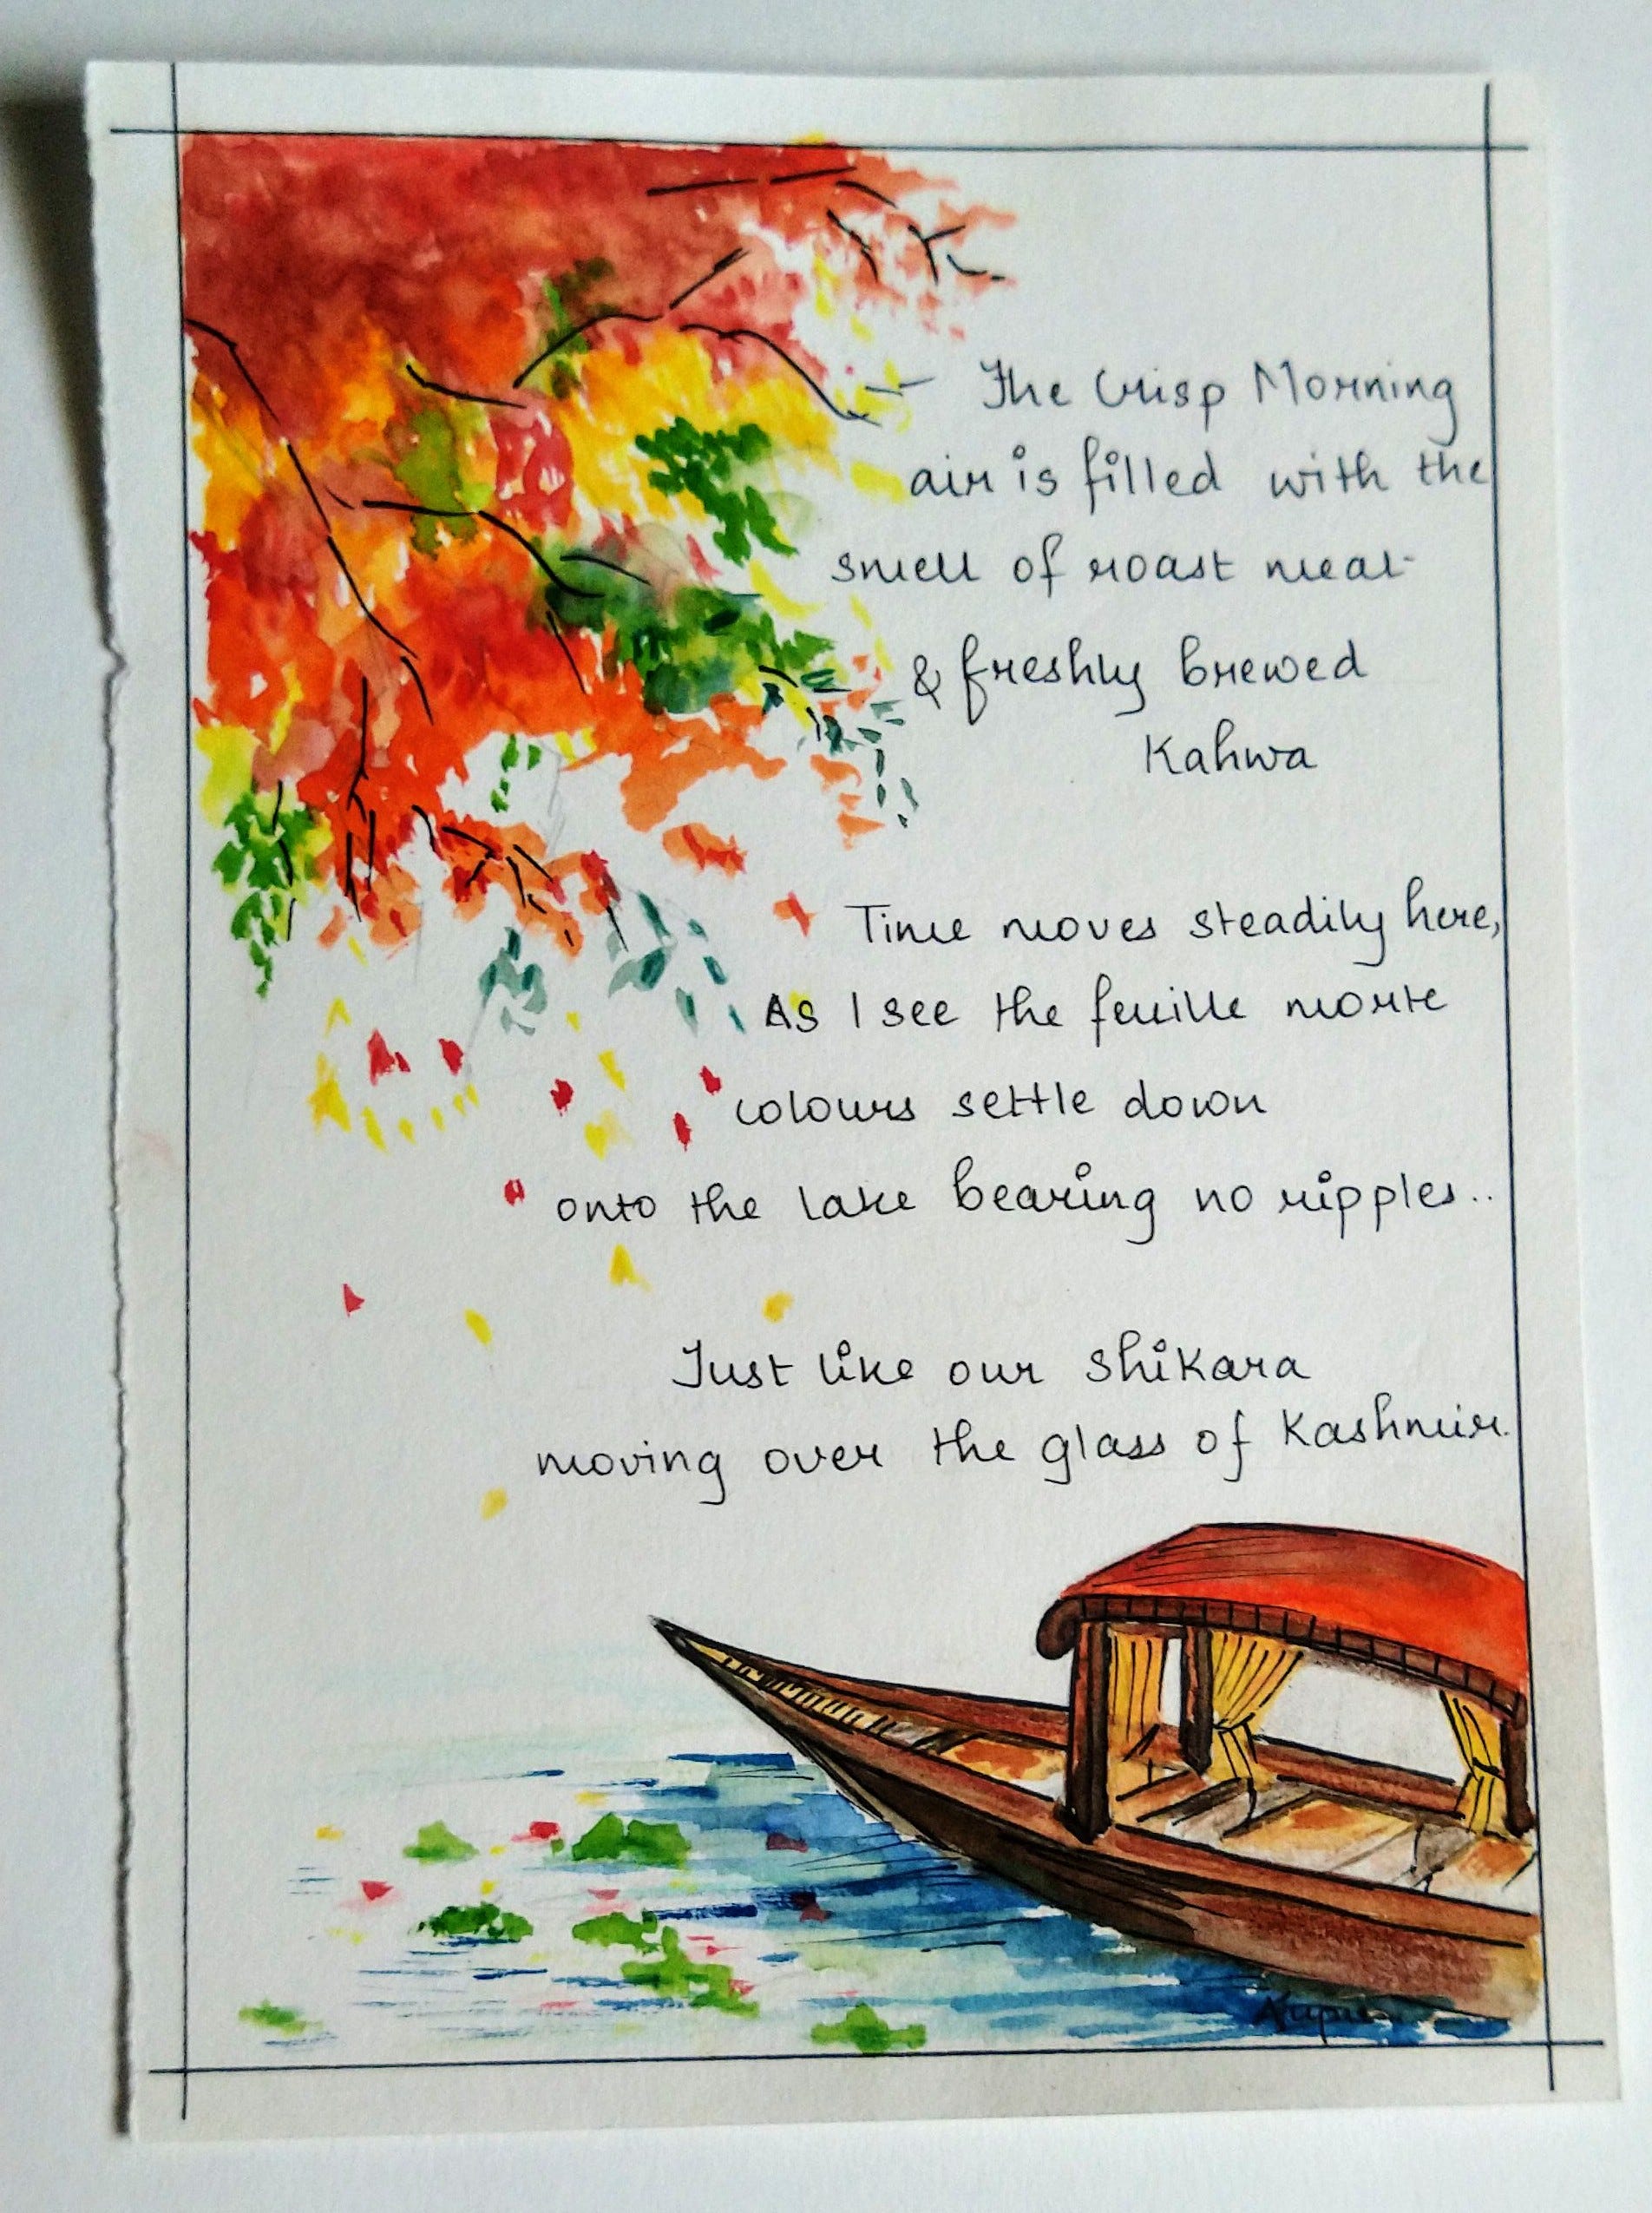 The Crisp Morning
air is filled with the
smell of roast meat
& freshly brewed
Kahwa
Time moves steadily here,
As I see the feuille morte
colours settle down
onto the lake bearing no ripples..
Just like our Shikara
moving over the glass of Kashmir.
Nupur